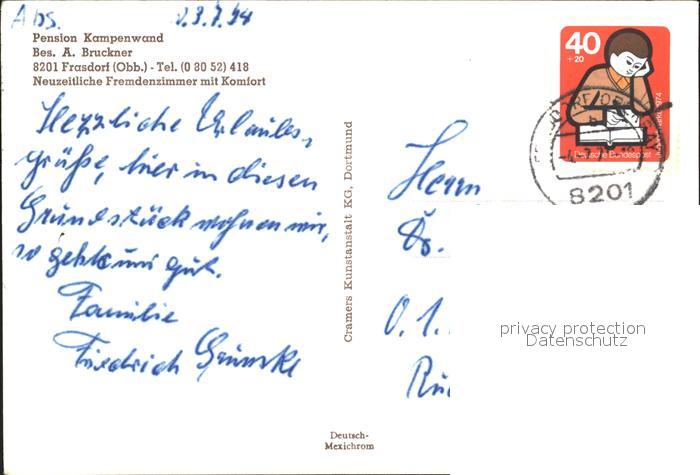 Abs. d. 3.7.74
Pension Kampenwand
Bes. A. Bruckner
8201 Frasdorf (Obb.) - Tel. (0 80 52) 418
Neuzeitliche Fremdenzimmer mit Komfort
Herzliche Urlaubs,
grüße, hier in diesen
Grundstück wohnen wir,
so geht uns gut.
Familie
Friedrich
Cramers Kunstanstalt KG, Dortmund
Deutsch-
Mexichrom
40
+20
Deutsche Bundespost
8201
Herrn
Dr.
O. 1.
privacy protection
Datenschutz